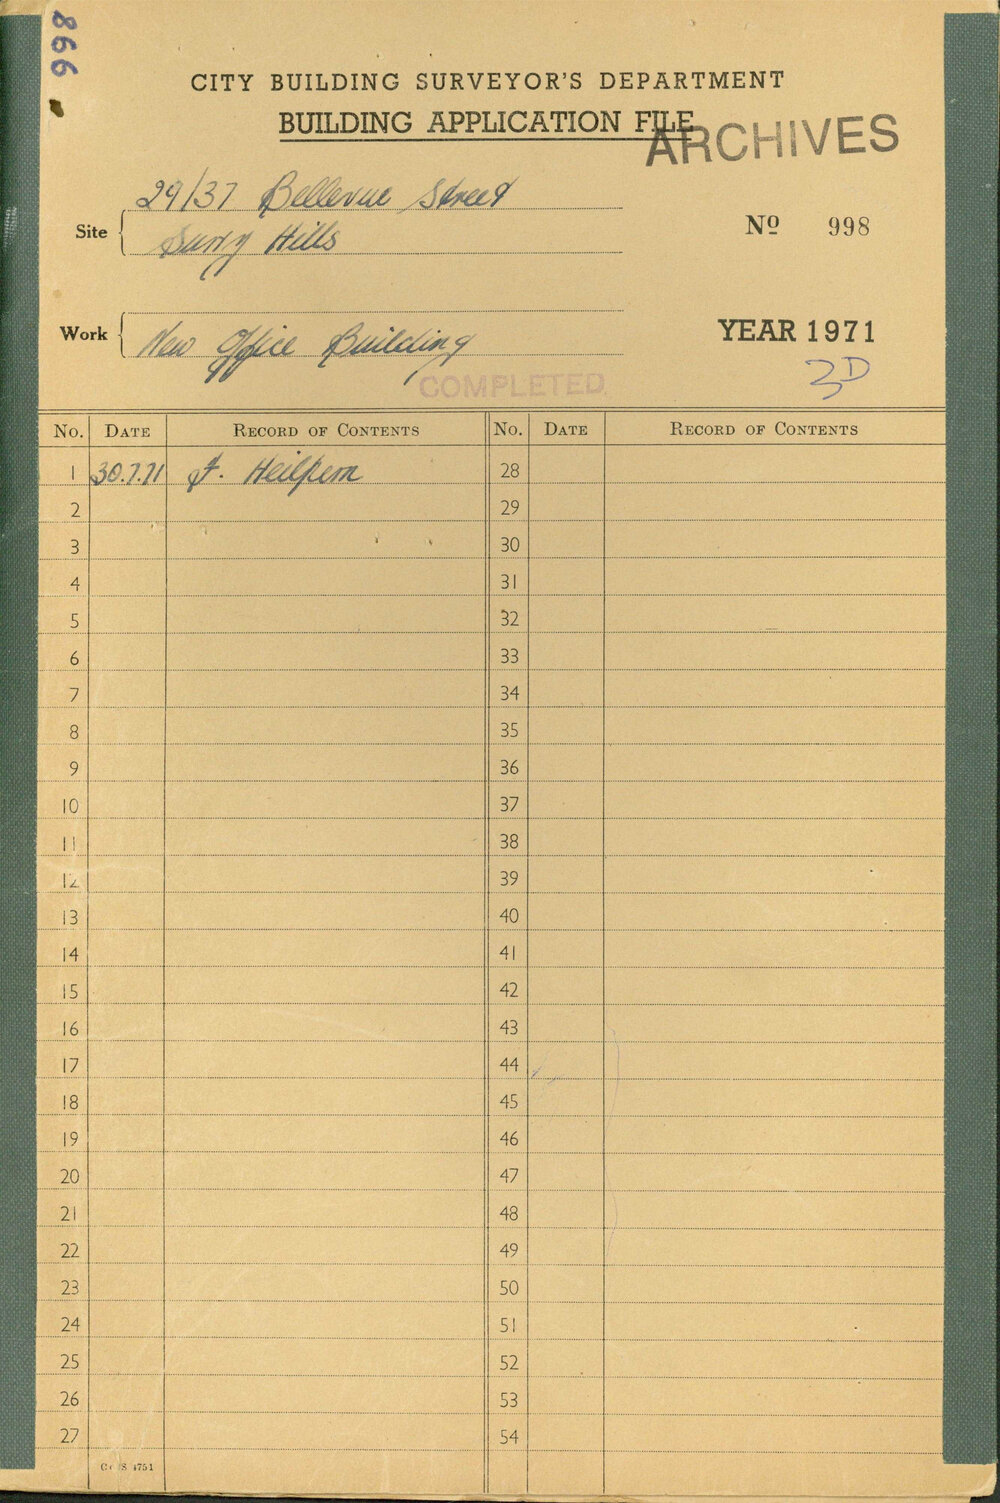 998
CITY BUILDING SURVEYOR'S DEPARTMENT
BUILDING APPLICATION FILE
ARCHIVES
29/37 Bellevue Street
Site
Surry Hills
Nº 998
Work
New Office Building
YEAR 1971
3D
COMPLETED
No. DATE RECORD OF CONTENTS No. DATE RECORD OF CONTENTS
1 30.7.71 F. Heilpern 28
2 29
3 30
4 31
5 32
6 33
7 34
8 35
9 36
10 37
11 38
12 39
13 40
14 41
15 42
16 43
17 44
18 45
19 46
20 47
21 48
22 49
23 50
24 51
25 52
26 53
27 54
4751